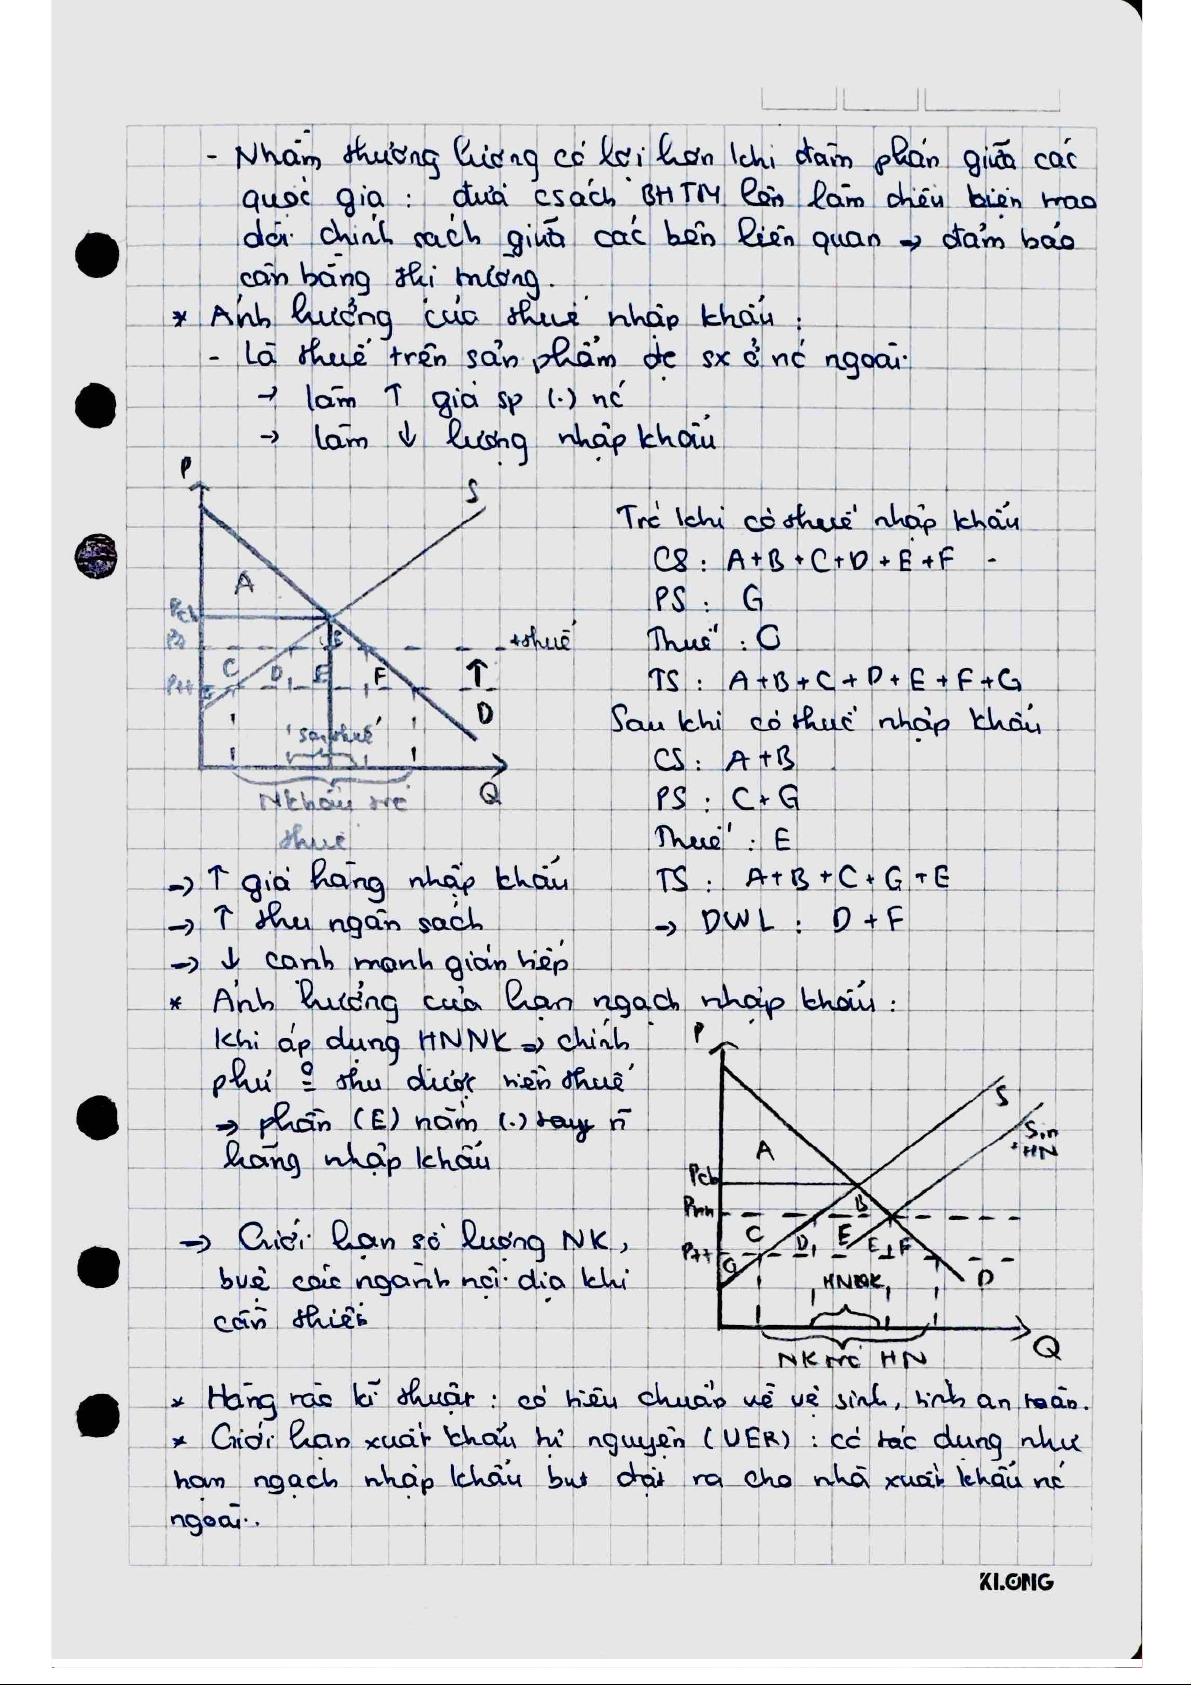 - Nhằm thương lượng có lợi hơn khi đàm phán giữa các
quốc gia : đưa csách BHTM lên làm điều kiện trao
đổi chính sách giữa các bên liên quan → đảm bảo
cân bằng thị trường.
* Ảnh hưởng của thuế nhập khẩu :
- Là thuế trên sản phẩm đc sx ở nc ngoài.
→ làm ↑ giá sp (.) nc
→ làm ↓ lượng nhập khẩu
P
S
A
Pcb
+thuế
B
C D E F
Ptt
G
D
sau thuế
Q
Nkhẩu trc
thuế
Trc khi có thuế nhập khẩu
CS : A+B+C+D+E+F
PS : G
Thuế : O
TS : A+B+C+D+E+F+G
Sau khi có thuế nhập khẩu
CS : A+B
PS : C+G
Thuế : E
TS : A+B+C+G+E
→ DWL : D+F
→ ↑ giá hàng nhập khẩu
→ ↑ thu ngân sách
→ ↓ cạnh tranh gián tiếp
* Ảnh hưởng của hạn ngạch nhập khẩu :
Khi áp dụng HNNK → chính
phủ o thu được tiền thuế
→ phần (E) nằm (.) tay n
hàng nhập khẩu
→ Giới hạn số lượng NK,
các ngành nội địa khi
cần thiết
P
S
S in
+HN
A
Pcb
B
C D E E F
Ptt
G
D
NK trc HN
Q
* Hàng rào kĩ thuật : có tiêu chuẩn về vệ sinh, tính an toàn.
* Giới hạn xuất khẩu tự nguyện (VER) : có tác dụng như
hạn ngạch nhập khẩu but đặt ra cho nhà xuất khẩu nc
ngoài.
KLONG